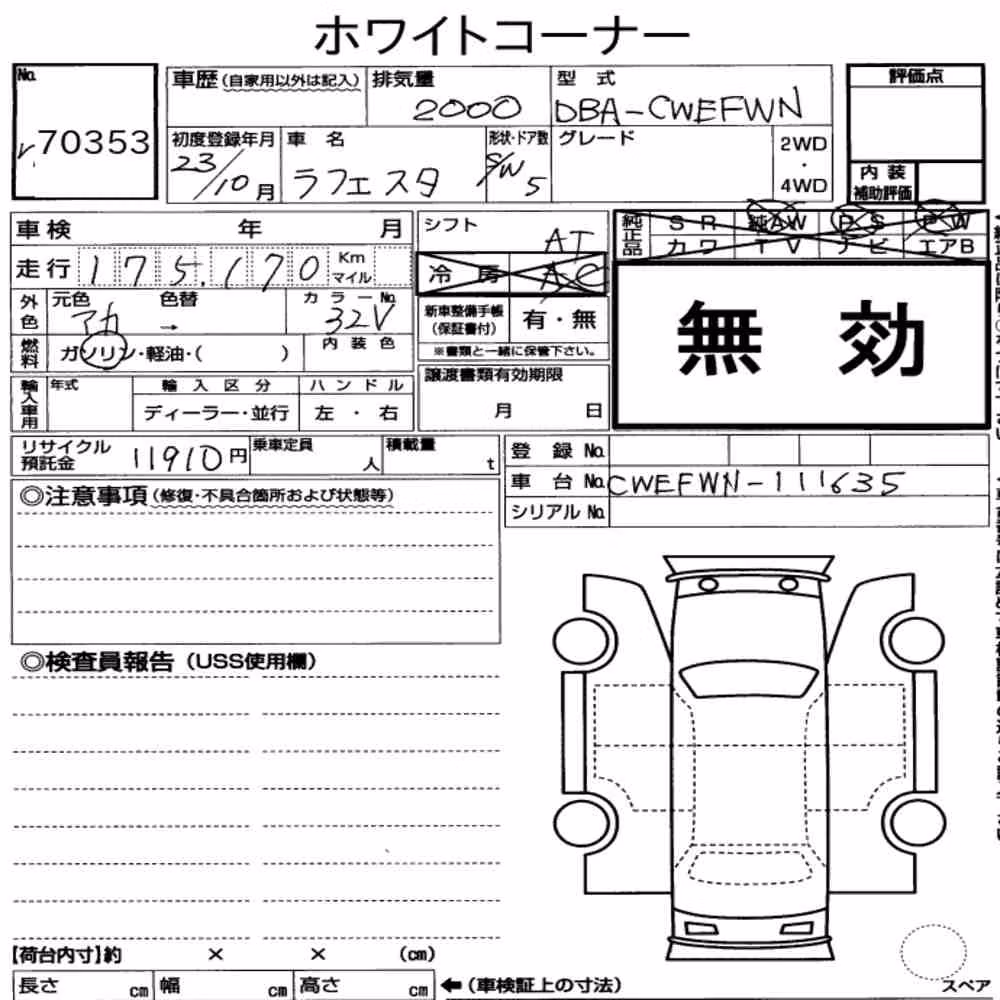 ホワイトコーナー
No.
70353
車歴 (自家用以外は記入)
排気量
2000
型 式
DBA-CWEFWN
評価点
初度登録年月
23/10月
車 名
ラフェスタ
形状・ドア数
S/W 5
グレード
2WD
・
4WD
内 装
補助評価
車検 年 月
シフト
AT
純正品
SR 純AW PS PW
カワ TV ナビ エアB
走行 175,170 Km マイル
冷房 AC
外色
元色 アカ
色替 →
カラーNo.
32V
新車整備手帳
(保証書付)
有・無
※書類と一緒に保管下さい。
無 効
燃料
ガソリン・軽油・( )
内装色
譲渡書類有効期限
月 日
輸入車用
年式
輸入区分
ディーラー・並行
ハンドル
左 ・ 右
リサイクル
預託金
11910円
乗車定員
人
積載量
t
登 録 No.
車 台 No. CWEFWN-111635
シリアル No.
◎注意事項 (修復・不具合箇所および状態等)
◎検査員報告 (USS使用欄)
【荷台内寸】約 × × (cm)
長さ cm 幅 cm 高さ cm ←(車検証上の寸法)
スペア